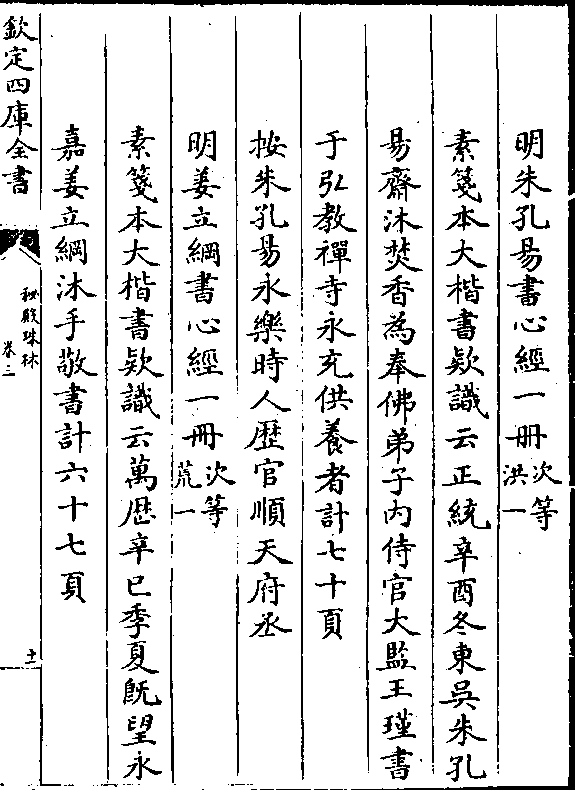 明朱孔昜書心經一冊次等洪一
素箋本大楷書欵識云正統辛酉冬東吳朱孔
昜齋沐焚香為奉佛弟子内侍官大監王瑾書
于弘教禪寺永充供養者計七十頁
按朱孔昜永樂時人歴官順天府丞
明姜立綱書心經一冊次等荒一
素箋本大楷書欵識云萬歴辛巳季夏既望永
嘉姜立綱沐手敬書計六十七頁
欽定四庫全書
秘殿珠林
卷三
十一